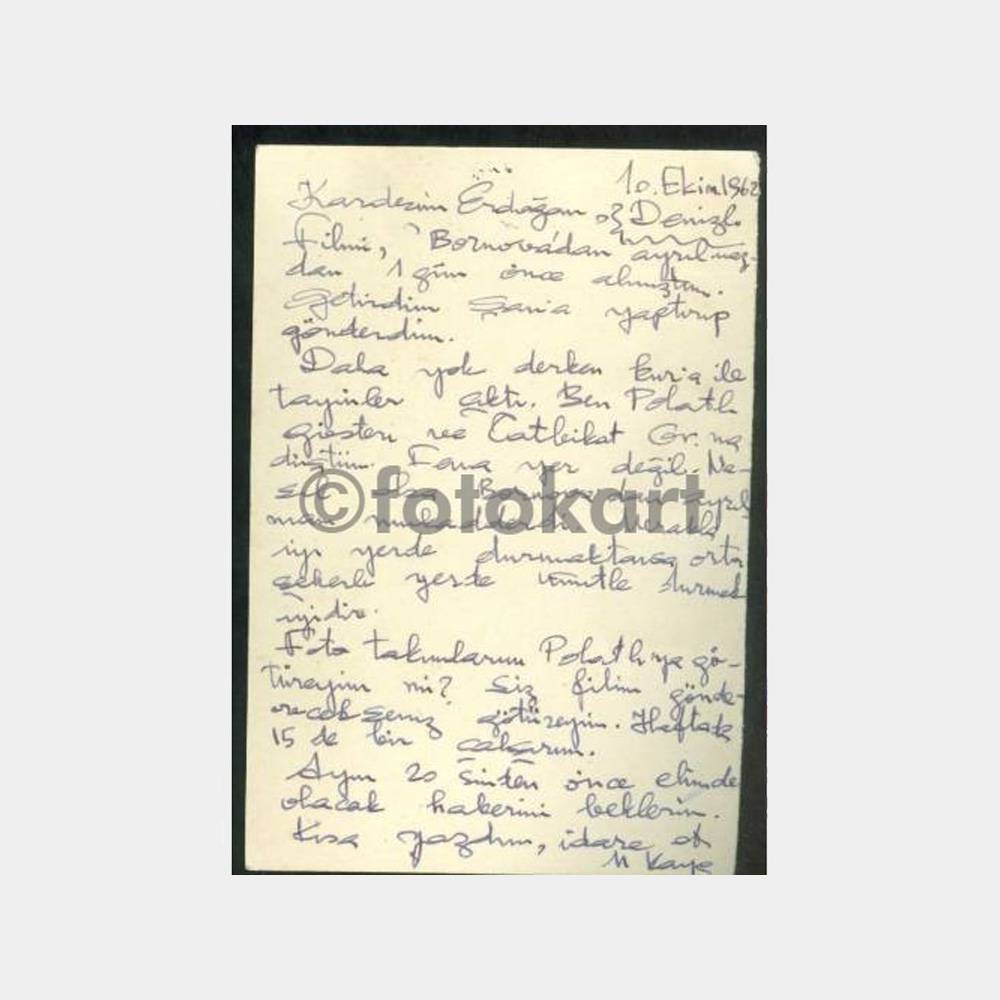 10. Ekim 1962
Kardeşim Erdoğan Denizli
Filmi, Bornova'dan ayrılmaz-
dan 1 gün önce almıştım.
Getirdim yaptırıp
gönderdim.
Daha yok derken kur'a ile
tayinler çıktı. Ben Polatlı
ve Gr. na
düştüm. Fena yer değil. Ne-
©fotokart
iyi yerde durmaktansa orta
şekerli yerde ümitle durmak
iyidir.
Foto takımlarını Polatlıya gö-
türeyim mi? Siz filim gönde-
receksiniz götüreyim. Haftada
15 de bir
Ayın 20 sinden önce elimde
olacak haberini beklerim.
Kısa yazdım, idare et